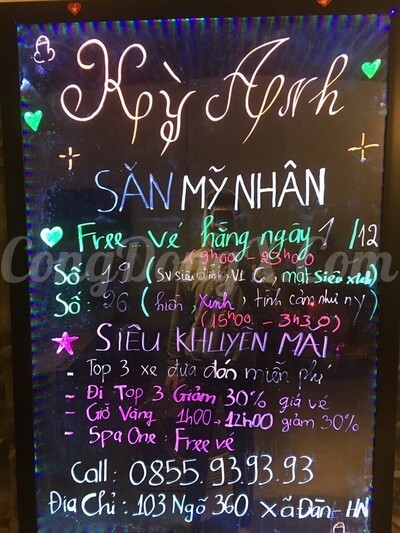 Kỳ Anh
SĂN MỸ NHÂN
Free vé hằng ngày 1/12
9h00 - 23h00
Số 19 (SV siêu dâm, V1 C, mặt Siêu xinh)
Số: 26 (hiền, xinh, tình cảm như ny)
(15h00 - 3h30)
SIÊU KHUYẾN MẠI:
- Top 3 xe đưa đón miễn phí
- Đi Top 3 Giảm 30% giá vé
- Giờ Vàng 1h00 → 12h00 giảm 30%
- Spa One: Free vé
Call: 0855.93.93.93
Địa Chỉ: 103 Ngõ 360 xã Đàn - HN